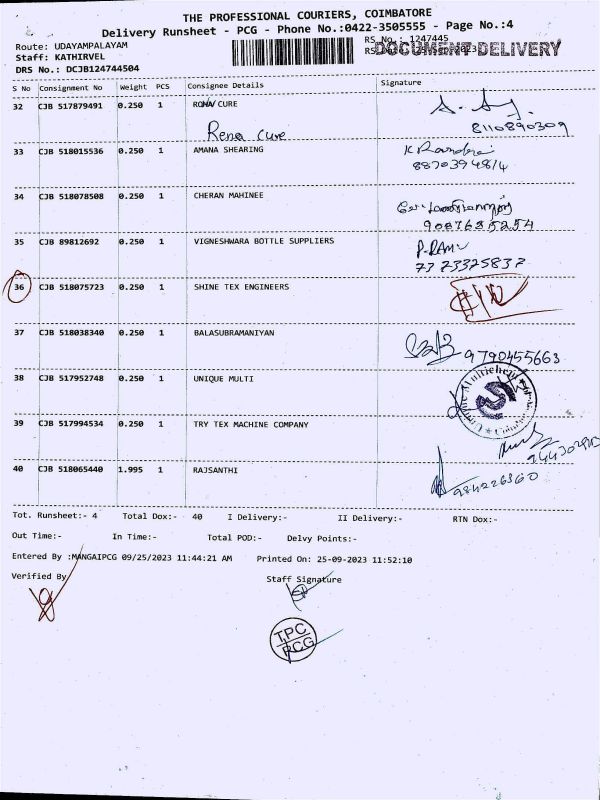 THE PROFESSIONAL COURIERS, COIMBATORE
Delivery Runsheet - PCG - Phone No.:0422-3505555 - Page No.:4
Route: UDAYAMPALAYAM
RS No.: 1247445
DOCUMENT DELIVERY
Staff: KATHIRVEL
DRS No.: DCJB124744504
S No Consignment No Weight PCS Consignee Details Signature
32 CJB 517879491 0.250 1 RONA CURE
Rena Cure
8110890309
33 CJB 518015536 0.250 1 AMANA SHEARING
34 CJB 518078508 0.250 1 CHERAN MAHINEE
9087635254
35 CJB 89812692 0.250 1 VIGNESHWARA BOTTLE SUPPLIERS
P.RAMU
7373325837
36 CJB 518075723 0.250 1 SHINE TEX ENGINEERS
37 CJB 518038340 0.250 1 BALASUBRAMANIYAN
9790455663
38 CJB 517952748 0.250 1 UNIQUE MULTI
39 CJB 517994534 0.250 1 TRY TEX MACHINE COMPANY
40 CJB 518065440 1.995 1 RAJSANTHI
Tot. Runsheet:- 4 Total Dox:- 40 I Delivery:- II Delivery:- RTN Dox:-
Out Time:- In Time:- Total POD:- Delvy Points:-
Entered By :MANGAIPCG 09/25/2023 11:44:21 AM Printed On: 25-09-2023 11:52:10
Verified By
Staff Signature
TPC
PCG